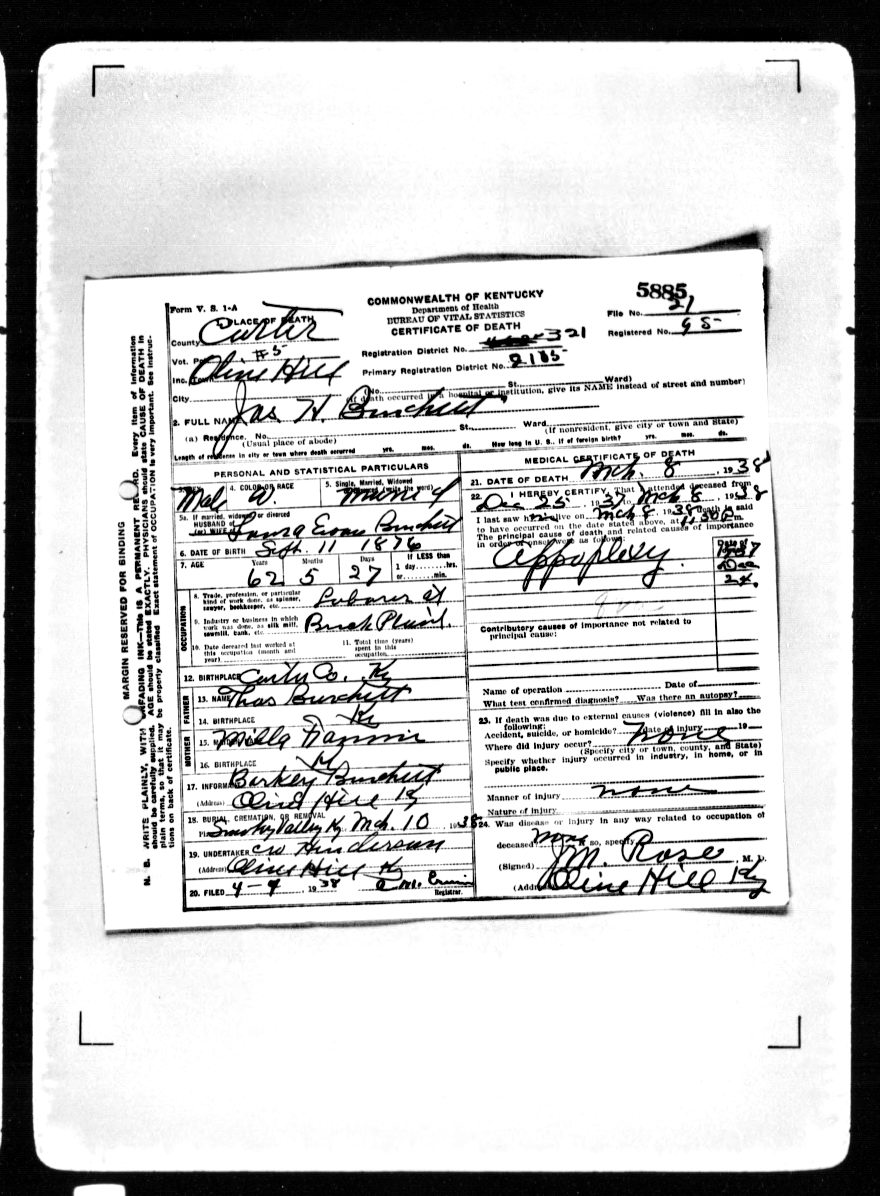 Form V. S. 1-A
COMMONWEALTH OF KENTUCKY
Department of Health
BUREAU OF VITAL STATISTICS
CERTIFICATE OF DEATH
5885
File No. 21
Registered No. 95
1. PLACE OF DEATH
County Carter
Vot. Pct. #5
Inc. Town Olive Hill
City
Registration District No. 321
Primary Registration District No. 2185
(No. St. Ward)
(If death occurred in a hospital or institution, give its NAME instead of street and number)
2. FULL NAME Jas H. Burchett
(a) Residence. No. St. Ward
(Usual place of abode) (If nonresident, give city or town and State)
Length of residence in city or town where death occurred yrs. mos. ds. How long in U. S., if of foreign birth? yrs. mos. ds.
PERSONAL AND STATISTICAL PARTICULARS
3. SEX Male 4. COLOR OR RACE W. 5. Single, Married, Widowed or Divorced (write the word) Married
5a. If married, widowed or divorced
HUSBAND of
(or) WIFE of Laura Evans Burchett
6. DATE OF BIRTH Sept. 11 1876
7. AGE Years Months Days If LESS than
62 5 27 1 day hrs.
or min.
OCCUPATION
8. Trade, profession, or particular kind of work done, as spinner, sawyer, bookkeeper, etc. Laborer at
9. Industry or business in which work was done, as silk mill, sawmill, bank, etc. Brick Plant.
10. Date deceased last worked at this occupation (month and year)
11. Total time (years) spent in this occupation
12. BIRTHPLACE Carter Co. Ky
FATHER
13. NAME Thos Burchett
14. BIRTHPLACE Ky
MOTHER
15. MAIDEN NAME Milla
16. BIRTHPLACE Ky
17. INFORMANT Burchett
(Address) Olive Hill Ky
18. BURIAL, CREMATION, OR REMOVAL
Place Smoky Valley Ky. Mch. 10 1938
19. UNDERTAKER CW Henderson
(Address) Olive Hill Ky
20. FILED 4-4 1938 Registrar.
MEDICAL CERTIFICATE OF DEATH
21. DATE OF DEATH Mch. 8, 1938
22. I HEREBY CERTIFY, That I attended deceased from
Dec 25, 1937, to Mch 8, 1938
I last saw h alive on Mch 8, 1938 death is said
to have occurred on the date stated above, at 11:30 P m.
The principal cause of death and related causes of importance
in order of onset were as follows:
Date of
Appoplexy. 1937
Dec
24.
Contributory causes of importance not related to
principal cause:
Name of operation Date of
What test confirmed diagnosis? Was there an autopsy?
23. If death was due to external causes (violence) fill in also the
following:
Accident, suicide, or homicide? Date of injury 19
none
Where did injury occur?
(Specify city or town, county, and State)
Specify whether injury occurred in industry, in home, or in
public place.
Manner of injury none
Nature of injury
24. Was disease or injury in any way related to occupation of
deceased none If so, specify
(Signed) J.M. Rose, M. D.
(Address) Olive Hill Ky
MARGIN RESERVED FOR BINDING
N. B. WRITE PLAINLY, WITH UNFADING INK—THIS IS A PERMANENT RECORD. Every item of information
should be carefully supplied. AGE should be stated EXACTLY. PHYSICIANS should state CAUSE OF DEATH in
plain terms, so that it may be properly classified. Exact statement of OCCUPATION is very important. See instruc-
tions on back of certificate.